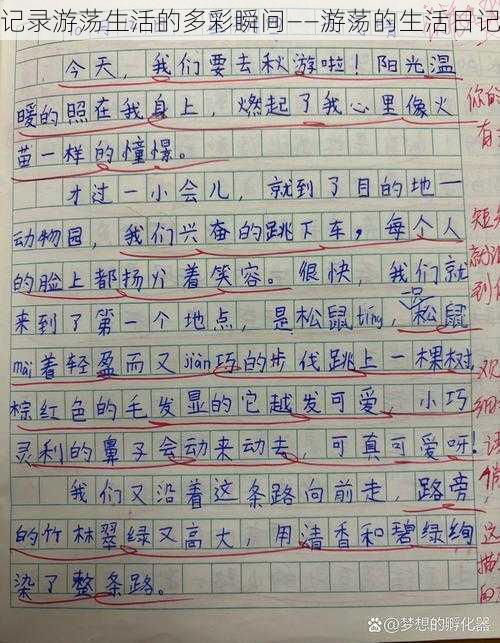 记录游荡生活的多彩瞬间——游荡的生活日记
今天，我们要去秋游啦！阳光温
暖的照在我身上，燃起了我心里像火
苗一样的憧憬。
才过一小会儿，就到了目的地一
动物园，我们兴奋的跳下车，每个人
的脸上都扬分着笑容。很快，我们就
来到了第一个地点，是松鼠tíng，松鼠
mài着轻盈而又jiàn巧的步伐跳上一棵树，
棕红色的毛发显的它越发可爱、小巧
灵利的鼻子会动来动去，可真可爱呀！
我们又沿着这条路向前走，路旁
的竹林翠绿又高大，用清香和碧绿绚
染了整条路。
你的
有
短
就
到
观
细
@梦想的孵化器